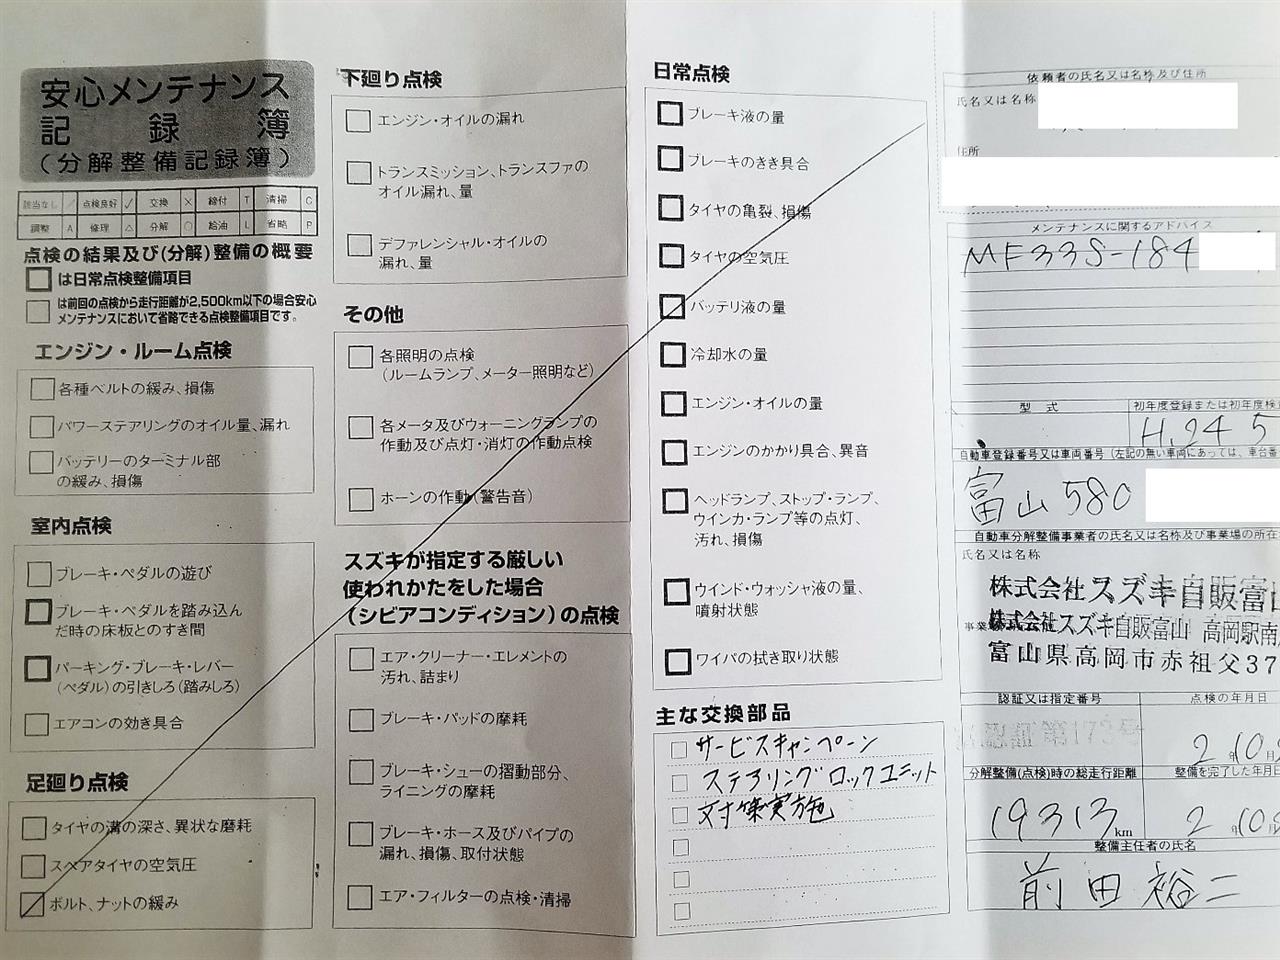 安心メンテナンス
記録簿
(分解整備記録簿)
該当なし ／ 点検良好 ✓ 交換 × 締付 T 清掃 C
調整 A 修理 △ 分解 ○ 給油 L 省略 P
点検の結果及び(分解)整備の概要
は日常点検整備項目
は前回の点検から走行距離が2,500km以下の場合安心
メンテナンスにおいて省略できる点検整備項目です。
エンジン・ルーム点検
各種ベルトの緩み、損傷
パワーステアリングのオイル量、漏れ
バッテリーのターミナル部
の緩み、損傷
室内点検
ブレーキ・ペダルの遊び
ブレーキ・ペダルを踏み込ん
だ時の床板とのすき間
パーキング・ブレーキ・レバー
(ペダル)の引きしろ(踏みしろ)
エアコンの効き具合
足廻り点検
タイヤの溝の深さ、異状な磨耗
スペアタイヤの空気圧
ボルト、ナットの緩み
下廻り点検
エンジン・オイルの漏れ
トランスミッション、トランスファの
オイル漏れ、量
デファレンシャル・オイルの
漏れ、量
その他
各照明の点検
(ルームランプ、メーター照明など)
各メータ及びウォーニングランプの
作動及び点灯・消灯の作動点検
ホーンの作動(警告音)
スズキが指定する厳しい
使われかたをした場合
(シビアコンディション)の点検
エア・クリーナー・エレメントの
汚れ、詰まり
ブレーキ・パッドの摩耗
ブレーキ・シューの摺動部分、
ライニングの摩耗
ブレーキ・ホース及びパイプの
漏れ、損傷、取付状態
エア・フィルターの点検・清掃
日常点検
ブレーキ液の量
ブレーキのきき具合
タイヤの亀裂、損傷
タイヤの空気圧
バッテリ液の量
冷却水の量
エンジン・オイルの量
エンジンのかかり具合、異音
ヘッドランプ、ストップ・ランプ、
ウインカ・ランプ等の点灯、
汚れ、損傷
ウインド・ウォッシャ液の量、
噴射状態
ワイパの拭き取り状態
主な交換部品
サービスキャンペーン
ステアリングロックユニット
対策実施
依頼者の氏名又は名称及び住所
氏名又は名称
住所
メンテナンスに関するアドバイス
MF33S-184
型式
初年度登録または初年度検
H.24 5
自動車登録番号又は車両番号(左記の無い車両にあっては、車台番
富山 580
自動車分解整備事業者の氏名又は名称及び事業場の所在
氏名又は名称
株式会社スズキ自販富山
株式会社スズキ自販富山 高岡駅南
富山県高岡市赤祖父37
認証又は指定番号
点検の年月日
2年10月
分解整備(点検)時の総走行距離
整備を完了した年月日
19313km
2年10月
整備主任者の氏名
前田裕二